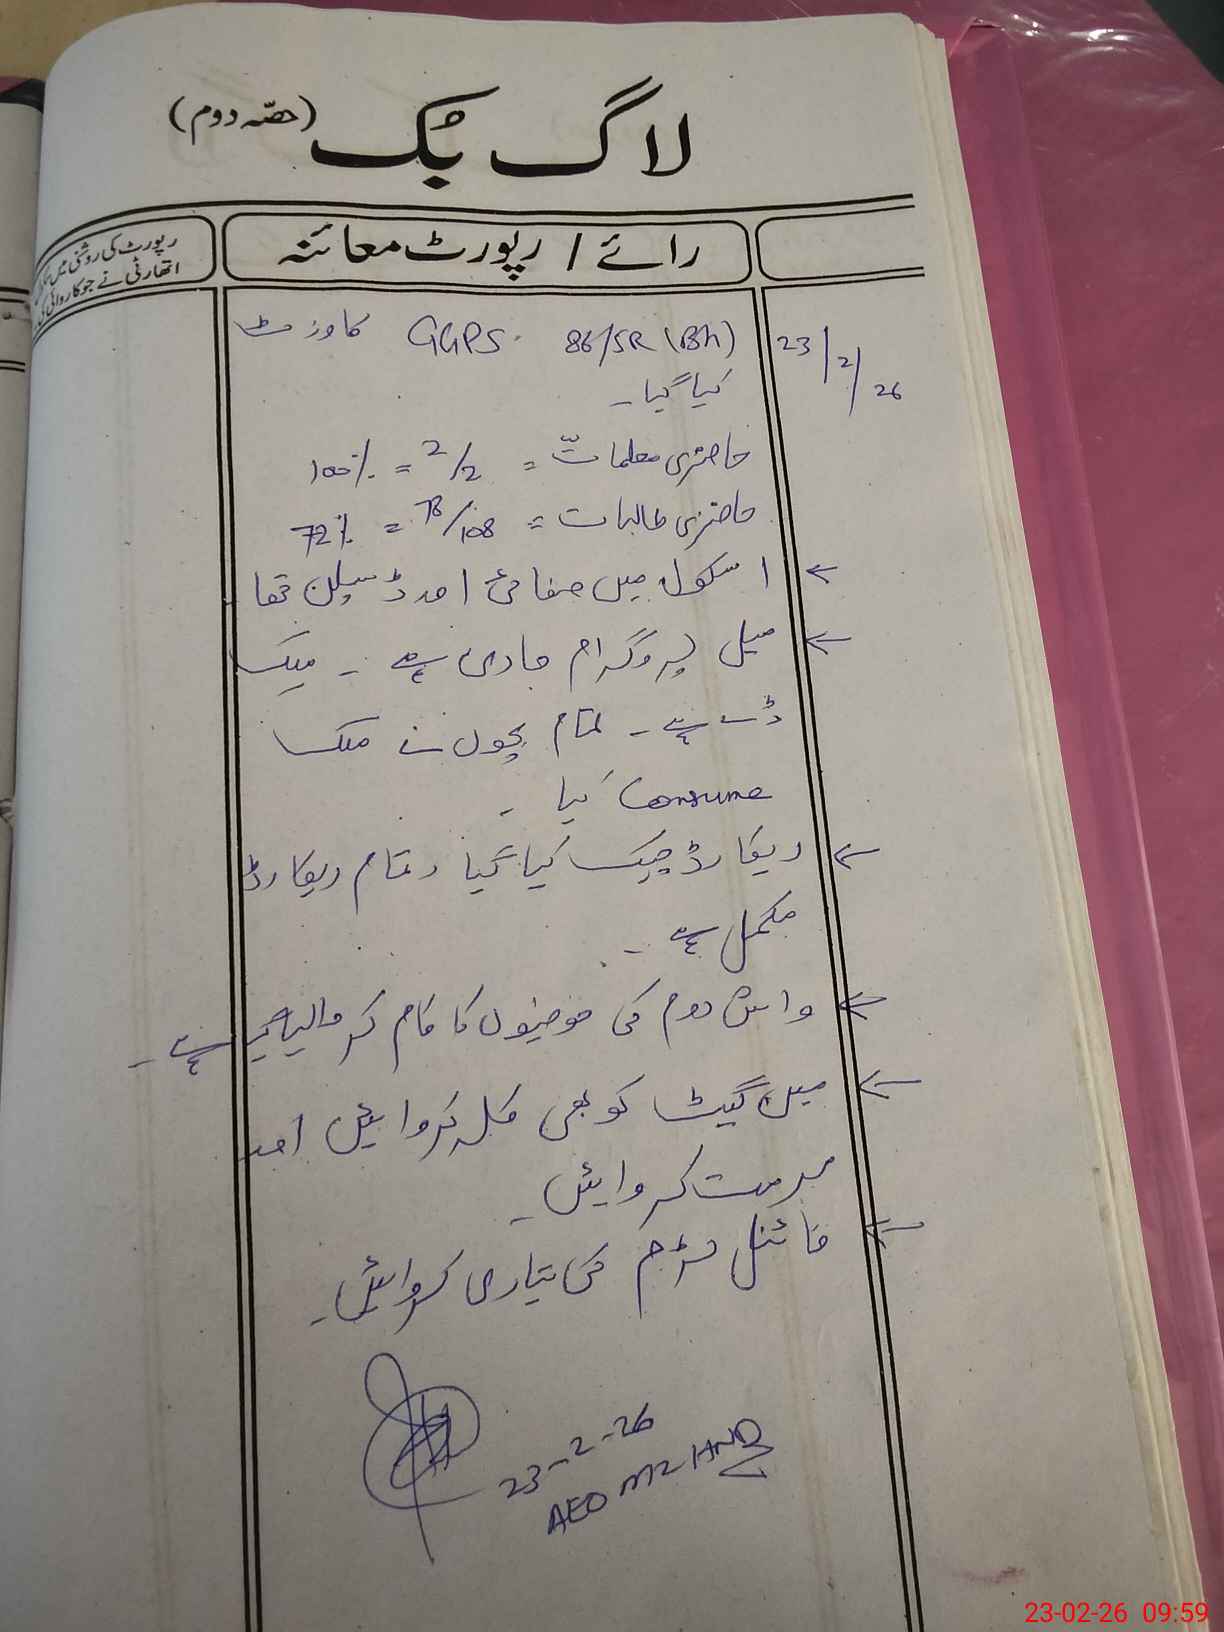 لاگ بُک (حصّہ دوم)
رائے / رپورٹ معائنہ
رپورٹ کی روشنی میں
اتھارٹی نے جو کاروائی کی
23/2/26
GGPS. 86/5R (Bh) کا وزٹ
کیا گیا۔
حاضری معلمات = 2/2 = 100%
حاضری طالبات = 78/108 = 72%
← اسکول میں صفائی اور ڈسپلن تھا
← میل پروگرام جاری ہے ۔ ملک
ڈے ہے ۔ تمام بچوں نے ملک
Consume کیا ۔
← ریکارڈ چیک کیا گیا ، تمام ریکارڈ
مکمل ہے ۔
← واش روم کی کا کام کروا لیا گیا ہے ۔
← مین گیٹ کو بھی کلر کروائیں اور
مرمت کروائیں ۔
← فائنل ٹرم کی تیاری کروائیں ۔
23-2-26
AEO MZ HND
23-02-26 09:59